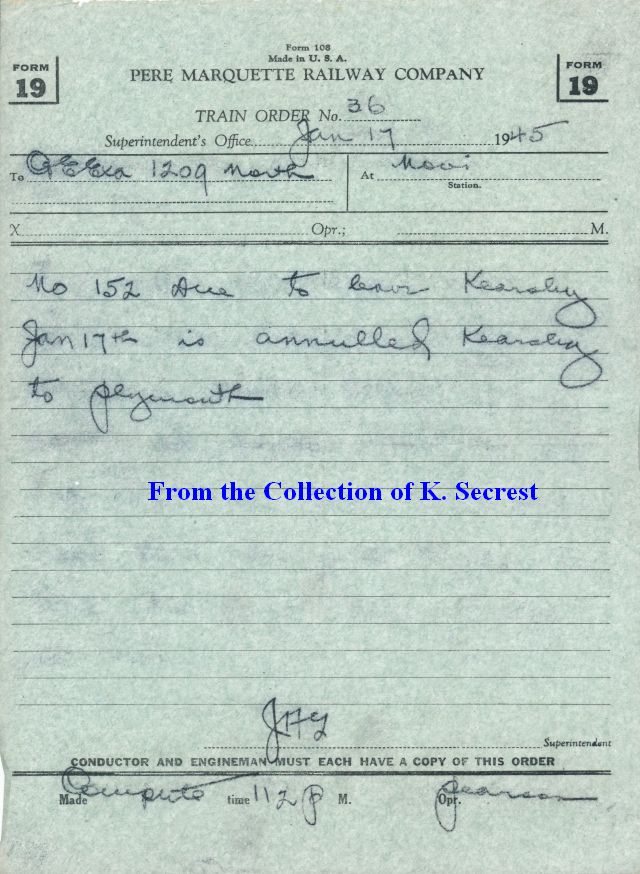 Form 108
Made in U. S. A.
FORM 19
PERE MARQUETTE RAILWAY COMPANY
FORM 19
TRAIN ORDER No. 36
Superintendent's Office Jan 17 1945
To Exa 1209 North At Novi
Station.
X Opr.; M.
No 152 due to leave Kearsley
Jan 17th is annulled Kearsley
to plymouth
From the Collection of K. Secrest
Superintendent
CONDUCTOR AND ENGINEMAN MUST EACH HAVE A COPY OF THIS ORDER
Made Compute time 112 P M. Opr. Pearson